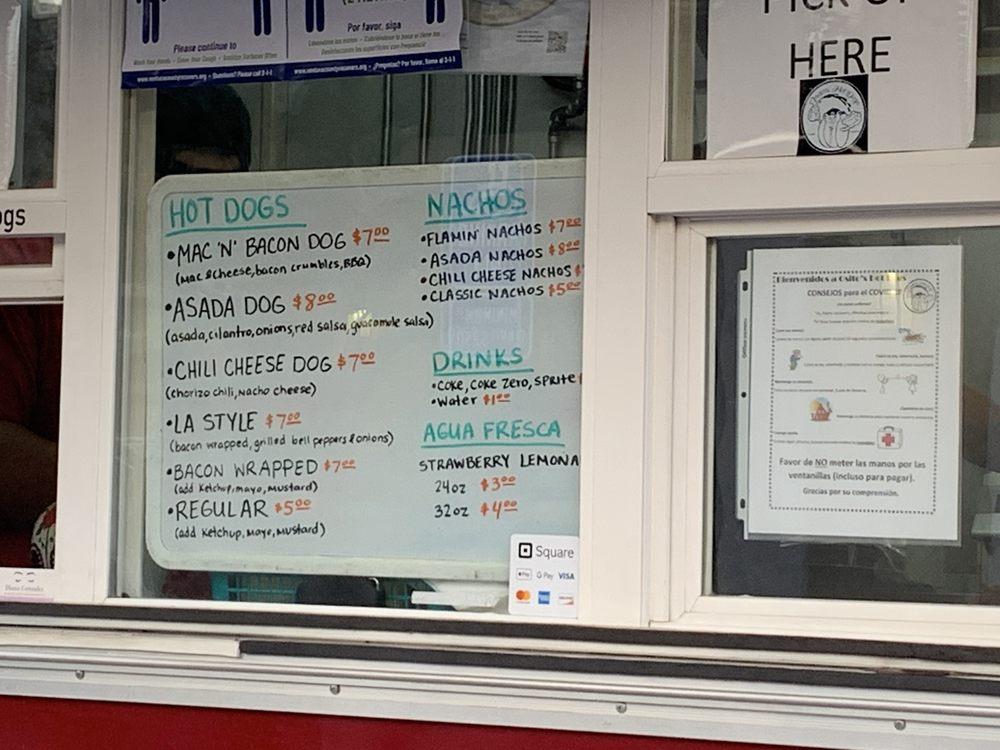 Please continue to
Wash Your Hands • Cover Your Cough • Sanitize Surfaces Often
Por favor, siga
www.venturacountyrecovers.org • Questions? Please call 2-1-1
HERE
ogs
HOT DOGS
•MAC 'N' BACON DOG $7.00
(Mac & Cheese, bacon crumbles, BBQ)
•ASADA DOG $8.00
(asada, cilantro, onions, red salsa, guacamole salsa)
•CHILI CHEESE DOG $7.00
(chorizo chili, Nacho cheese)
•LA STYLE $7.00
(bacon wrapped, grilled bell peppers & onions)
•BACON WRAPPED $7.00
(add Ketchup, mayo, mustard)
•REGULAR $5.00
(add Ketchup, Mayo, Mustard)
NACHOS
•FLAMIN' NACHOS $7.00
•ASADA NACHOS $8.00
•CHILI CHEESE NACHOS $
•CLASSIC NACHOS $5.00
DRINKS
•COKE, COKE ZERO, SPRITE
•Water $1.00
AGUA FRESCA
STRAWBERRY LEMONA
24oz $3.00
32oz $4.00
Square
Pay G Pay VISA
Bienvenidos a Osito's
CONSEJOS para el
Favor de NO meter las manos por las
ventanillas (incluso para pagar).
Gracias por su comprensión.